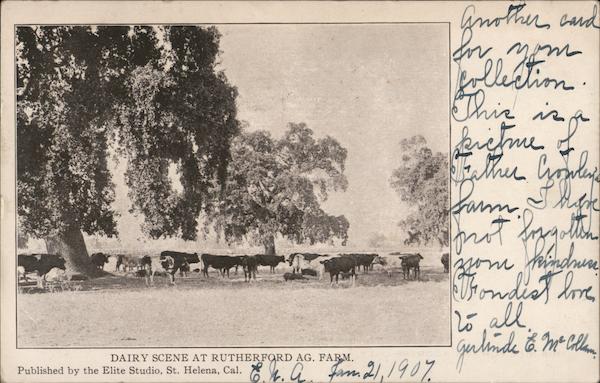 Another card
for your
Collection.
This is a
picture of
Father Crowley's
farm. I have
not forgotten
your kindness.
Fondest love
to all.
Gertrude E. McCollam.
DAIRY SCENE AT RUTHERFORD AG. FARM.
Published by the Elite Studio, St. Helena, Cal.
Jan. 21, 1907.